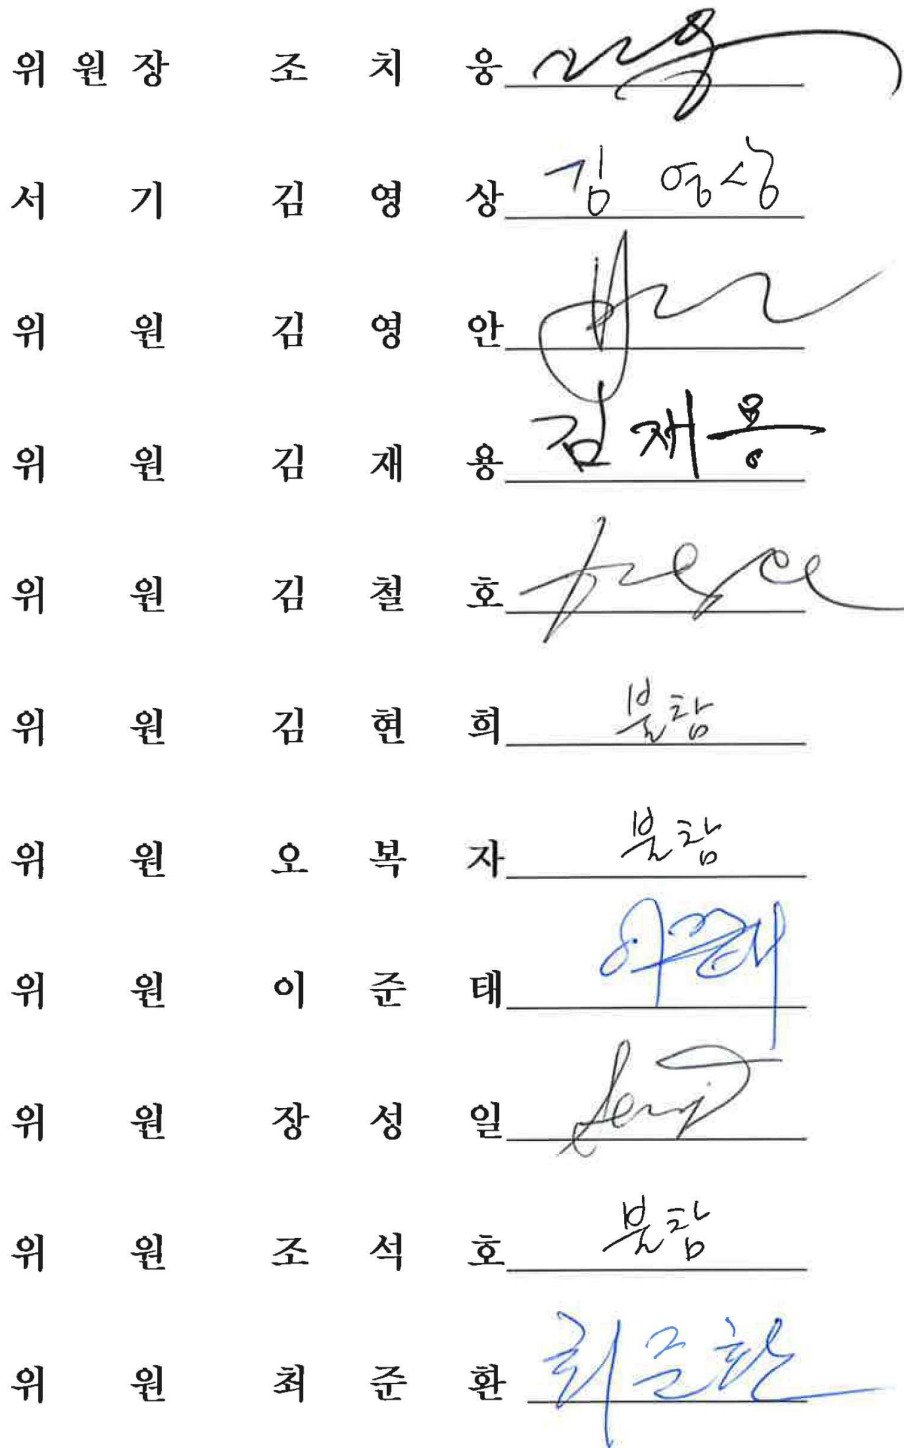 위 원 장 조 치 웅
서 기 김 영 상 김 영상
위 원 김 영 안
위 원 김 재 용 김 재 용
위 원 김 철 호
위 원 김 현 희 불참
위 원 오 복 자 불참
위 원 이 준 태 이준태
위 원 장 성 일
위 원 조 석 호 불참
위 원 최 준 환 최준환